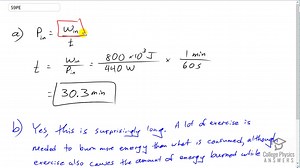 a) P_in = W_in / t
t = W_in / P_in = 800 × 10³ J / 440 W × 1 min / 60 s
= 30.3 min
b) Yes, this is surprisingly long. A lot of exercise is
needed to burn more energy than what is consumed, although
exercise also causes the amount of energy burned while
College Physics
ANSWERS